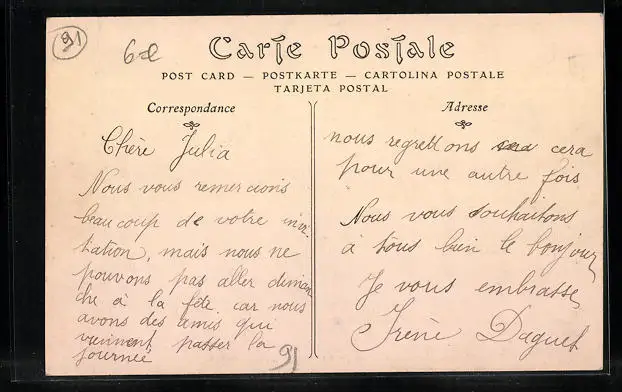 91
6-e
Carte Postale
POST CARD — POSTKARTE — CARTOLINA POSTALE
TARJETA POSTAL
Correspondance
Chère Julia
Nous vous remercions
beaucoup de votre invi
tation, mais nous ne
pouvons pas aller diman
che à la fête. car nous
avons des amis qui
viennent passer la
journeé
91
Adresse
nous regrettons cera
pour une autre fois
Nous vous souhaitons
à tous bien le bonjour
Je vous embrasse
Irène Daguet